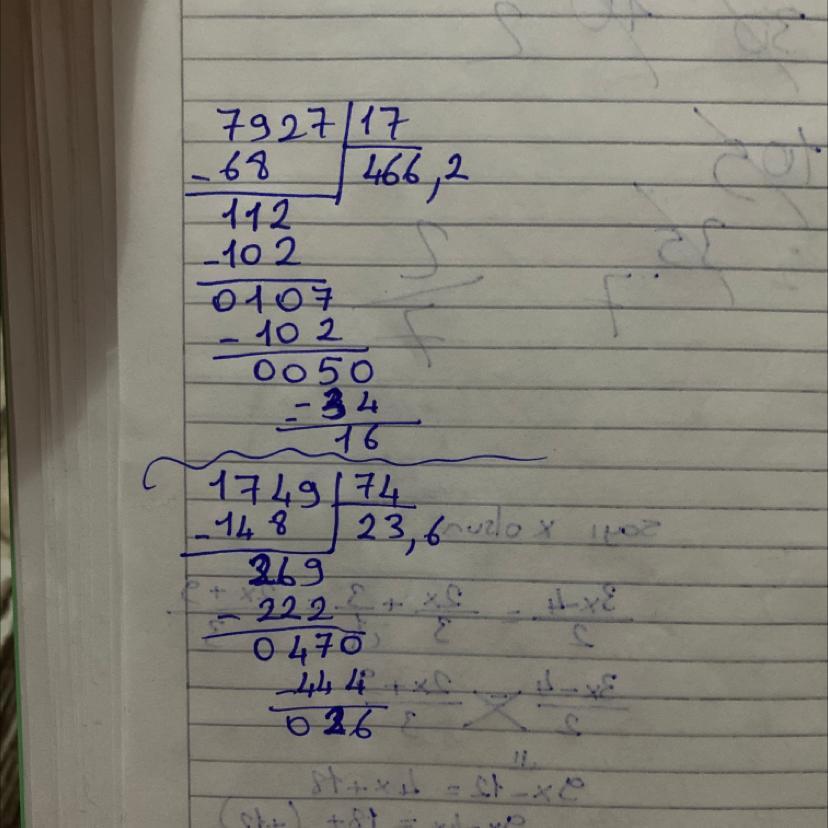 7927 17
-68 466,2
112
-102
0107
-102
0050
-34
16
1749 74
-148 23,6
269
-222
0470
-444
026